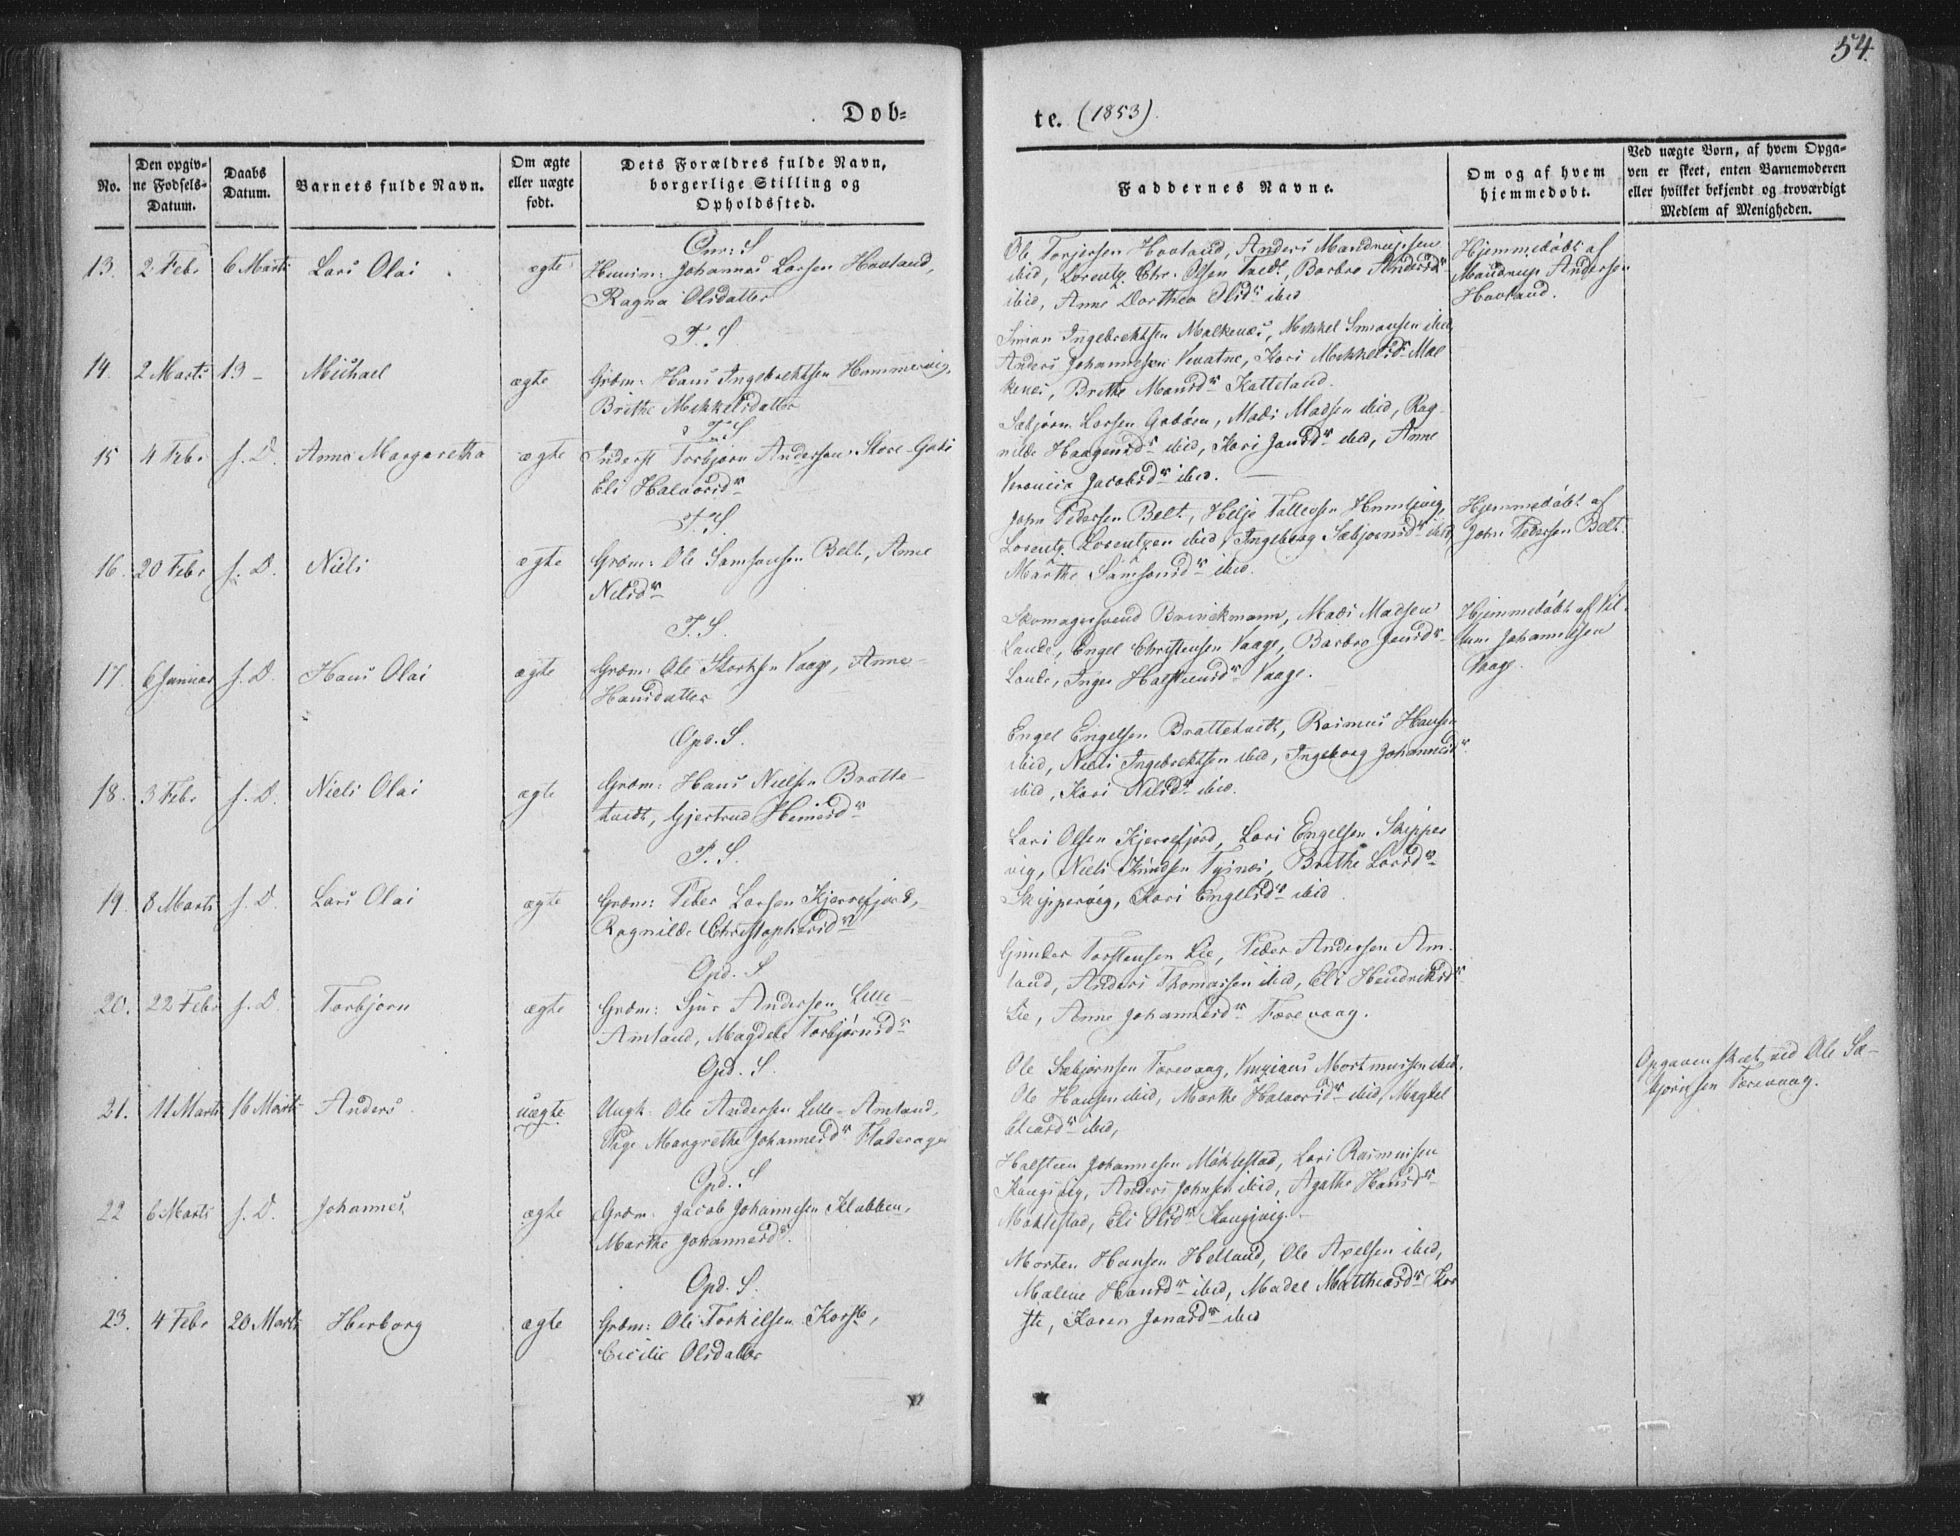 54.
Døb-
te. (1853).
No.
Den opgiv-
ne Fødsels-
Datum.
Daabs
Datum.
Barnets fulde Navn.
Om ægte
eller uægte
født.
Dets Forældres fulde Navn,
borgerlige Stilling og
Opholdssted.
Faddernes Navne.
Om og af hvem
hjemmedøbt.
Ved uægte Børn, af hvem Opga-
ven er skeet, enten Barnemoderen
eller hvilket bekjendt og troværdigt
Medlem af Menigheden.
13. 2 Febr 6 Marts Lars Olai ægte
Johannes Larsen Hovland,
Ragna Olsdatter
Ole Torjersen Hovland, Anders Mandrupsen
ibid, Lorentz Chr. Olsen Tvedt, Barbro Andersdr
ibid, Anne Dorthea Olsdr ibid
Hjemmedøbt af
Mandrup Andersen
Hovland.
T. S
14. 2 Marts 13 - Michael ægte
Grdm: Hans Ingebrektsen Hammervig,
Brithe Mikkelsdatter
Simon Ingebrektsen Malkenes, Mikkel Simonsen ibid,
Anders Johannesen Kari Mikkelsdr Mal
kenes, Brithe Monsdr Katteland.
T. S
15 4 Febr s. D. Anna Margaretha ægte
Inderst Torbjørn Andersen Store-
Eli Halvorsdr
Sæbjørn Larsen Mads Madsen ibid, Rag-
nilde Haagensdr ibid, Kari Jansdr ibid, Anne
Veronica Jacobsdr ibid.
T. S.
16. 20 Febr s. D. Niels ægte
Grdm: Ole Samsonsen Belt, Anne
Nilsdr
John Pedersen Belt, Helje Tallevsen
Lorentz Lorentzen ibid, Ingeborg Sæbjørnsdr ibid,
Marthe Samsonsdr ibid.
Hjemmedøbt af
John Pedersen Belt.
T. S.
17. 6 Januar s. D. Hans Olai ægte
Grdm: Ole Storksen Vaage, Anne
Hansdatter
Skomagersvend Brinckmann, Mads Madsen
Lande, Engel Christensen Vaage, Barbro Jansdr
Lande, Inger Halsteensdr Vaage.
Hjemmedøbt af Vil-
lum Johannesen
Vaage.
Opd. S.
18. 3 Febr s. D. Niels Olai ægte
Grdm: Hans Nielsen Bratte-
tvedt, Gjertrud
Engel Engelsen Brattetvedt, Rasmus Hansen
ibid, Niels Ingebrektsen ibid, Ingeborg Johannesdr
ibid, Kari Nilsdr ibid.
T. S.
19. 8 Marts s. D. Lars Olai ægte
Grdm: Peder Larsen Kjerrefjord,
Ragnilde Christophersdr
Lars Olsen Kjerrefjord, Lars Engelsen Skipper
vig, Niels Knudsen Tysnes, Brithe Larsdr
Skippervig, Kari Engelsdr ibid
Opd. S
20. 22 Febr s. D Torbjørn ægte
Grdm: Sjur Andersen Lille-
Amland, Magdele Torbjørnsdr
Gunder Torstensen Lie, Peder Andersen Am-
land, Anders Thomassen ibid, Eli Hendriksdr
Lie, Anne Johannesdr Færevaag.
Opd. S.
21. 11 Marts 16 Marts Anders uægte
Ungk. Ole Andersen Lille-Amland,
Pige Margrethe Johannesdr
Ole Sæbjørnsen Færevaag, Mortinussen ibid.
Ole Hansen ibid, Marthe Halvorsdr ibid, Magdel
ibid,
Opgaven skeet ved Ole Sæ-
bjørnsen Færevaag.
Opd. S
22 6 Marts s. D. Johannes ægte
Grdm: Jacob Johannesen Klubben,
Marthe Johannesdr.
Halsteen Johannesen Møklestad, Lars Rasmussen
Kongsvig, Anders Johnsen ibid, Agathe Hansdr
Møklestad, Eli Olsdr Kongsvig.
Opd. S.
23. 4 Febr 20 Marts Herborg ægte
Grdm: Ole Torkilsen Korste,
Cicilie Olsdatter
Morten Hansen Helland, Ole Axelsen ibid,
Malene Hansdr ibid, Madel Matthiasdr Kor
ste, Karen Jonasdr ibid